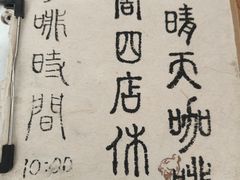 晴天咖啡
周四店休
啡時間
10:00